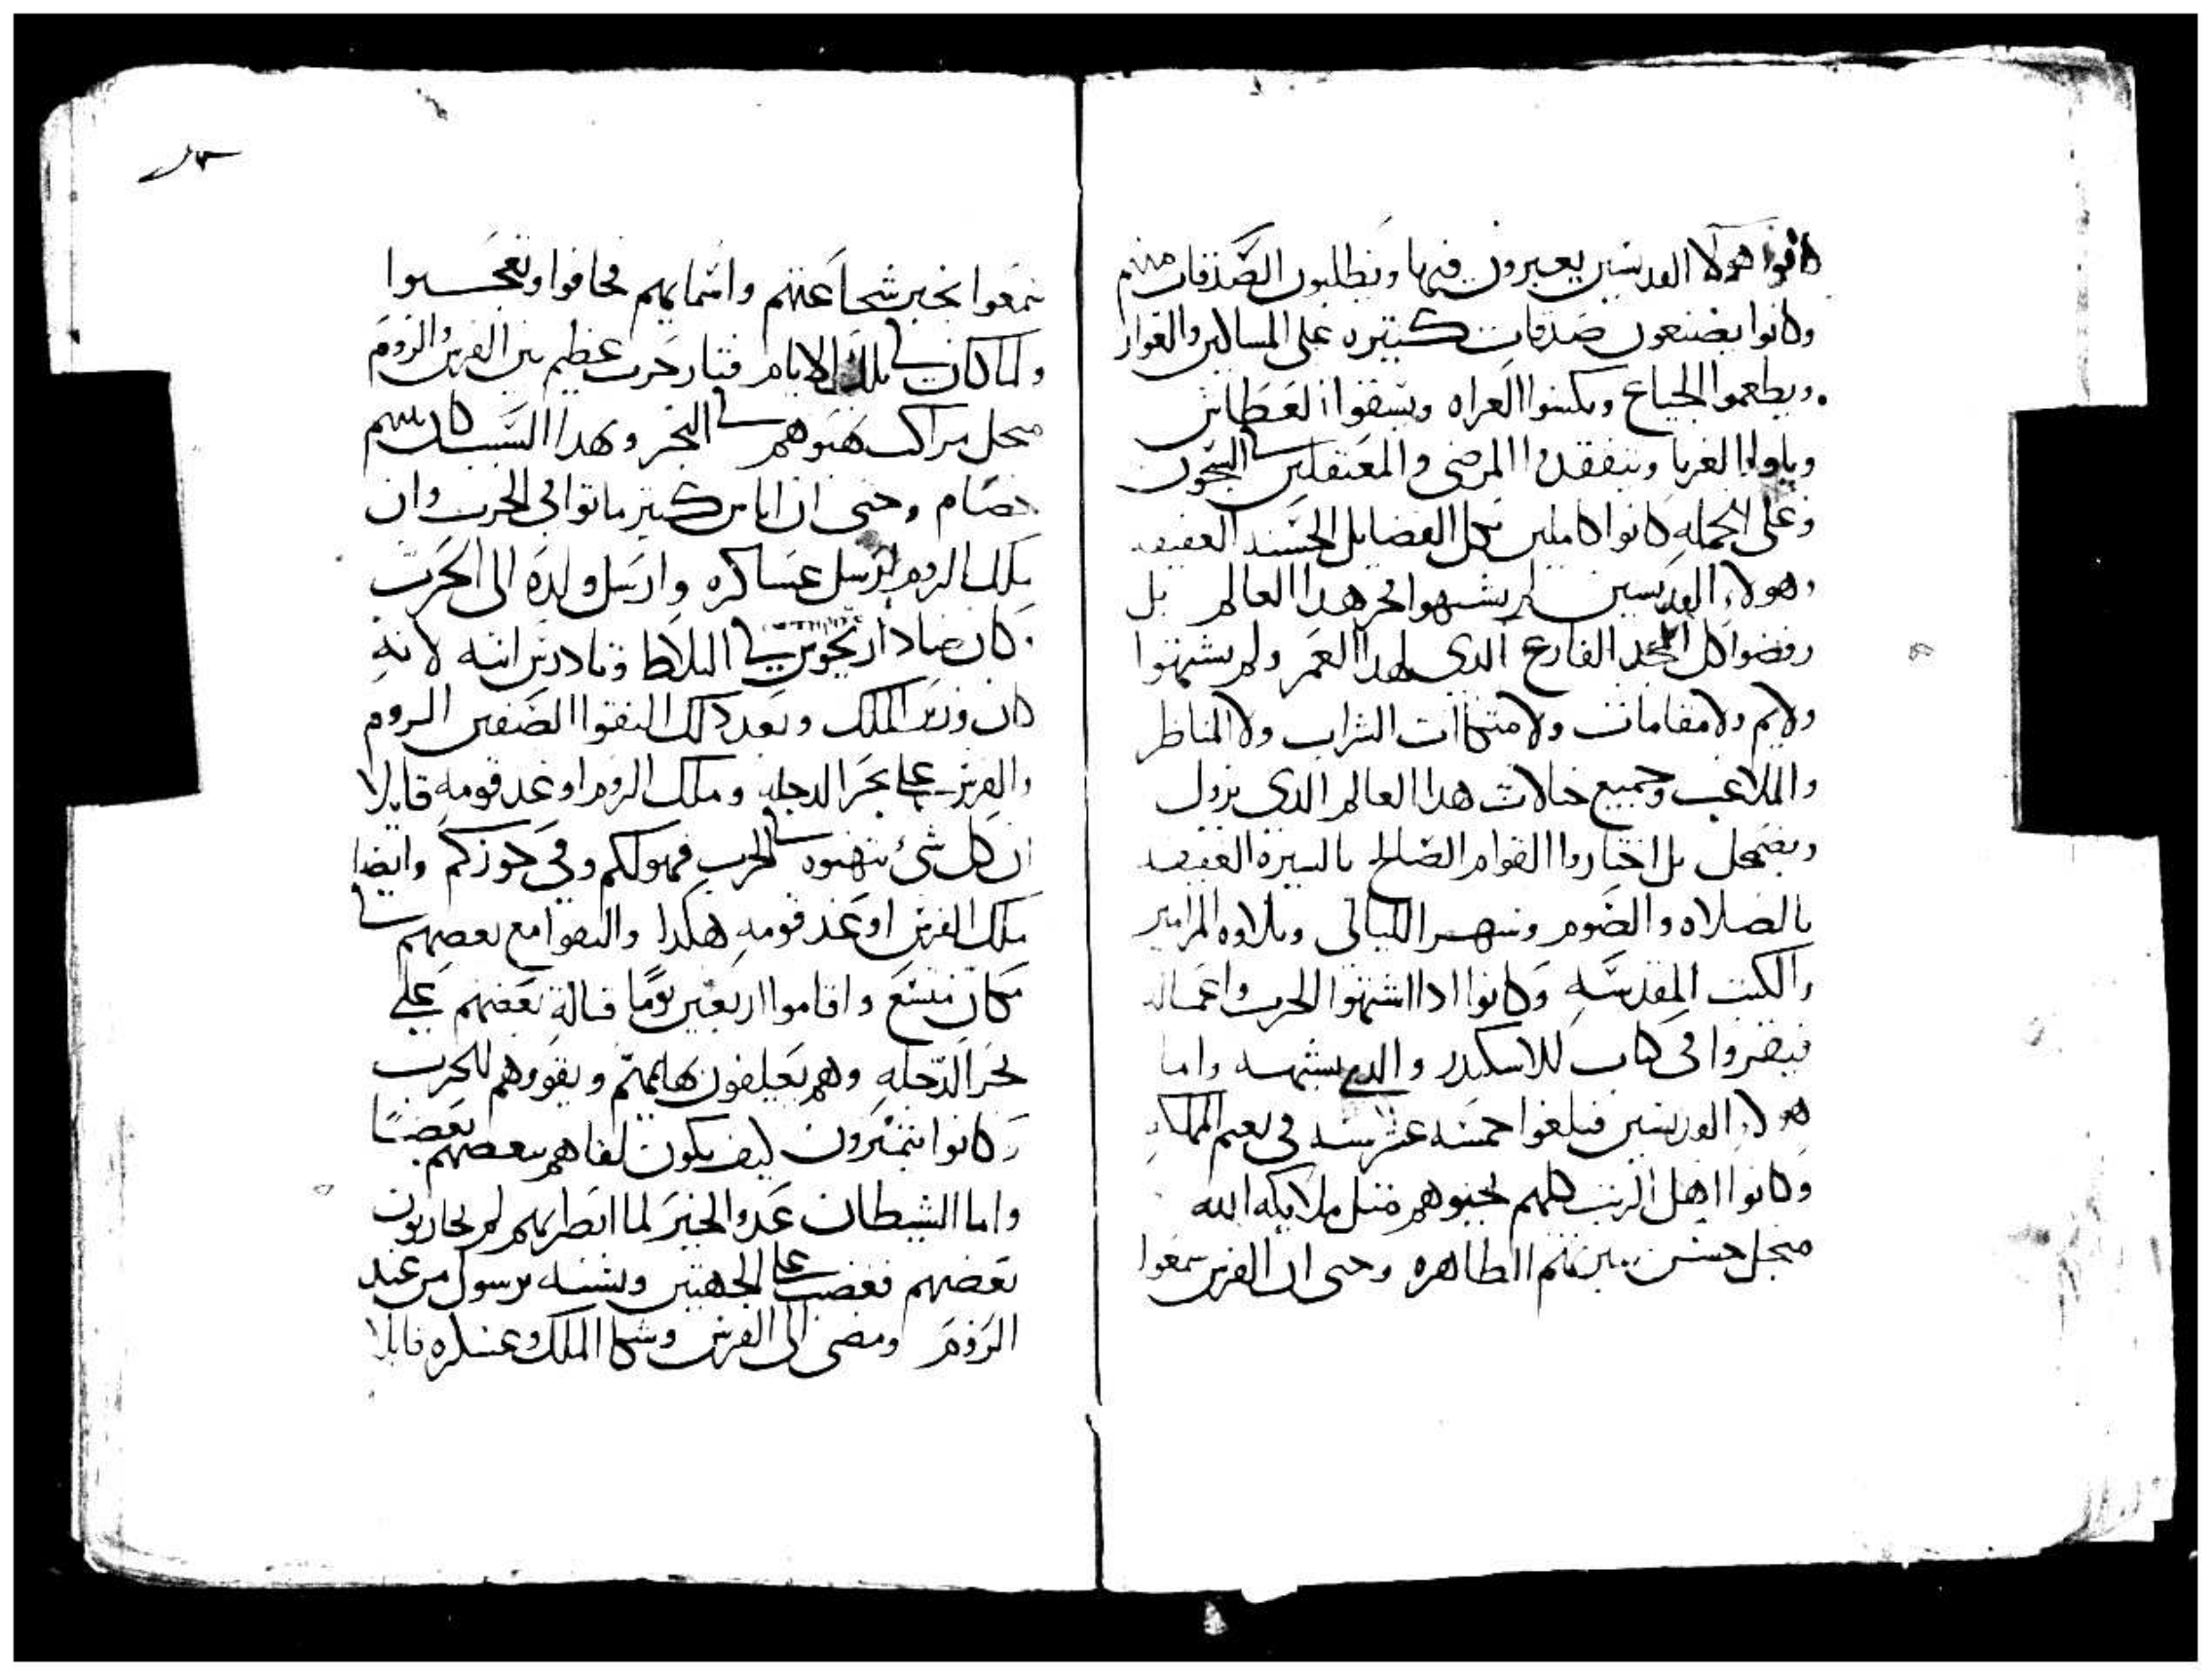 كانوا هولا القديسين يعبرون فيها ويطلبون الصدقات منهم
وكانوا يصنعون صدقات كتيره على المساكين والعواز
ويطعموا الجياع ويكسوا العراه ويسقوا العطاش
وياووا الغربا ويتفقدوا المرضى والمعتقلين في السجون
وعلى الجمله كانوا كاملين بكل الفضايل الحسنه العفيفه
وهولاء القديسين لم يشتهوا لخير هدا العالم بل
رفضوا كل المجد الفارغ الدي لهدا العمر ولم يشتهوا
ولايم ولا مقامات ولا متكاات الشراب ولا المناظر
والملاعب وجميع حالات هدا العالم الدي يزول
ويضمحل بل اختاروا القوام الصالح بالسيره العفيفه
بالصلاه والصوم وسهر الليالي وتلاوه المزامير
والكتب المقدسه وكانوا ادا اشتهوا الحرب واعماله
فيقروا في كتاب للاسكندر والدي يشبهه واما
هولاء القديسين فبلغوا خمسه عشر سنه في نعيم المملكه
وكانوا اهل الريف كلهم يحبوهم متل ملايكه الله
مجل حسن سيرتهم الطاهره وحتى ان الفرس سمعوا
سمعوا بخبر شجاعتهم واسمايهم فخافوا وتعجبوا
ولما كان في تلك الايام فتار حرب عظيم بين الفرس والروم
مجل مراكب نهبوهم في البحر وهدا السبب كان بينهم
خصام وحتى ان اناس كتير ماتوا في الحرب وان
ملك الروم ارسل عساكره وارسل ولده الى الحرب
وكان صادا ريخوس في البلاط وتادرس ابنه لانه
كان وزير الملك وبعد دلك التقوا الصفين الروم
والفرس على بحر الدجله وملك الروم اوعد قومه قايلا
ان كل شى تنهبوه في الحرب فهو لكم وفي حوزكم وايضا
ملك الفرس اوعد قومه هكدا والتقوا مع بعضهم في
مكان متسع واقاموا اربعين يوما قبالة بعضهم على
بحر الدجله وهم يعلفون بهايمهم ويقووهم للحرب
وكانوا يتفكرون كيف يكون لقاهم بعضهم بعضا
واما الشيطان عدو الخير لما انظر بهم لم يحاربون
بعضهم فغضب على الجهتين وتشبه برسول من عند
الروم ومضى الى الفرس وشكا الملك وعسكره قايلا